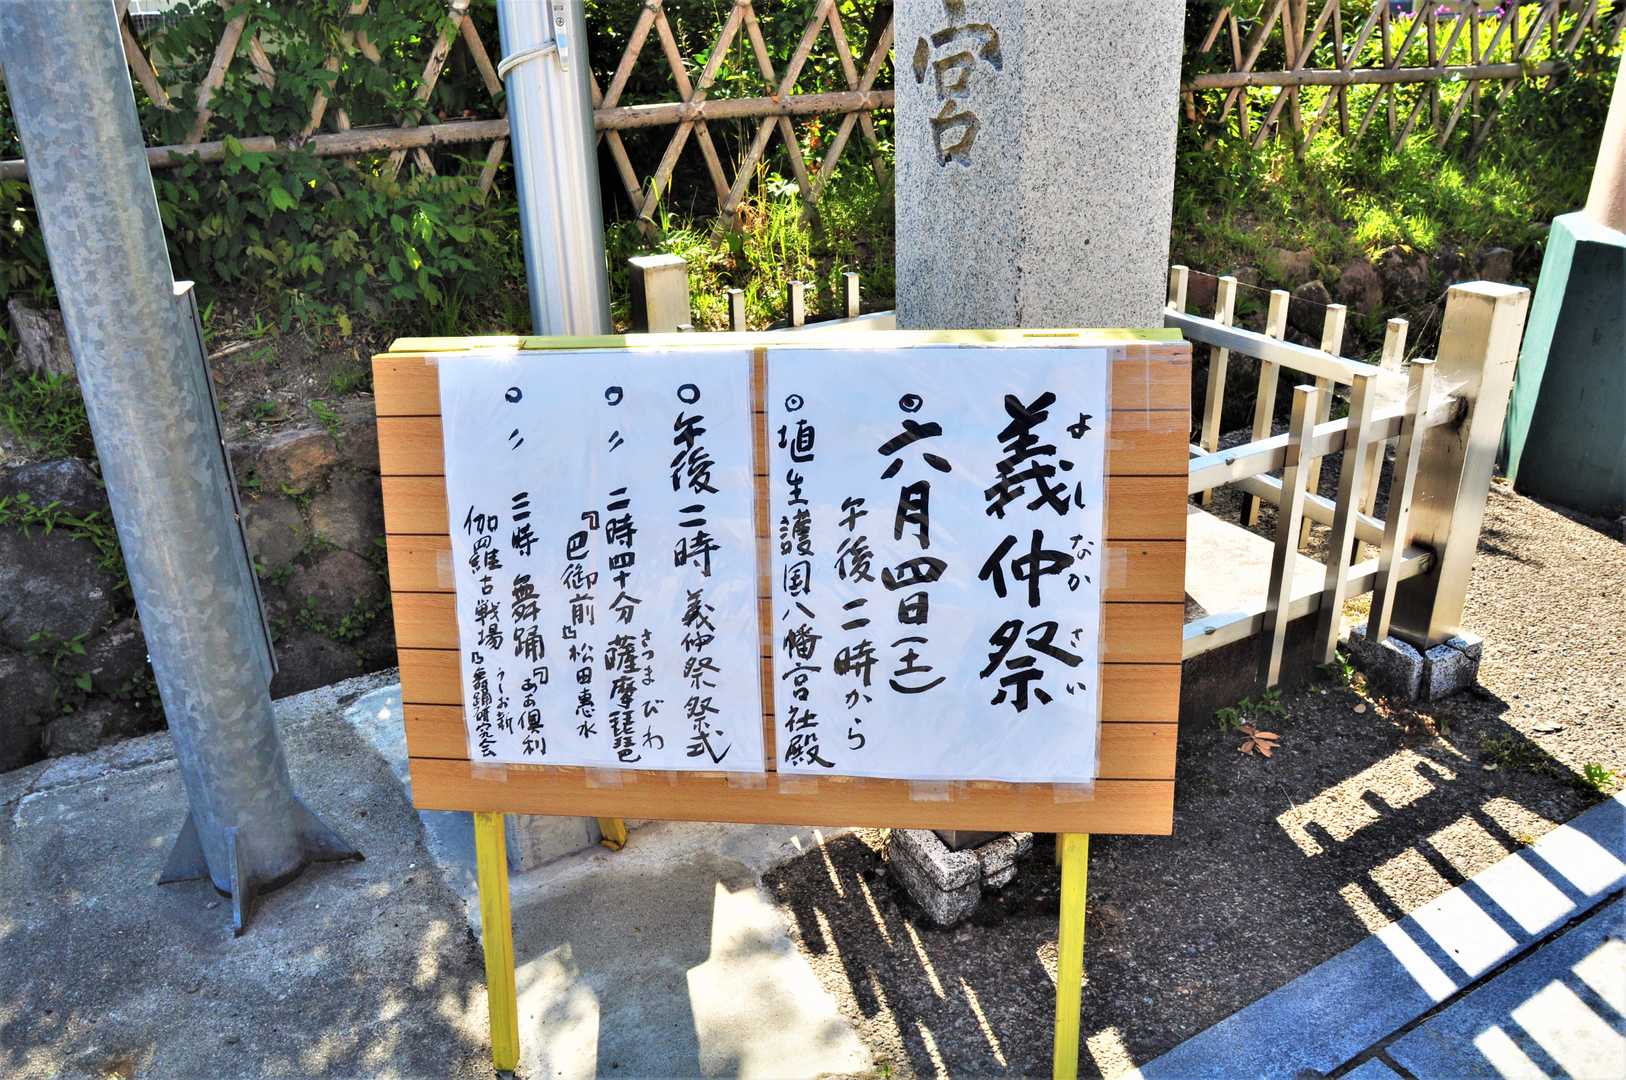 宮
義仲祭
よしなかさい
◎六月四日(土)
午後二時から
◎埴生護国八幡宮社殿
○午後二時 義仲祭祭式
○〃 二時四十分 薩摩琵琶
さつまびわ
『巴御前』松田恵水
○〃 三時 舞踊『あゝ倶利
伽羅古戦場』
うしお新舞踊研究会